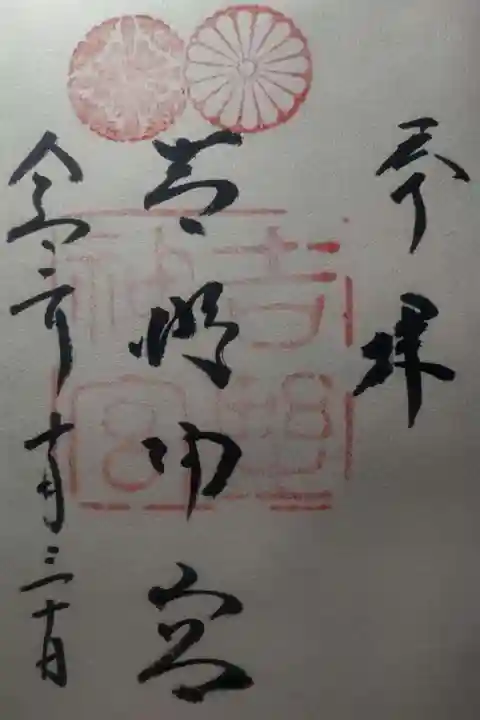 奉拝
吉野神宮
吉野神宮
令和二年十月三十日